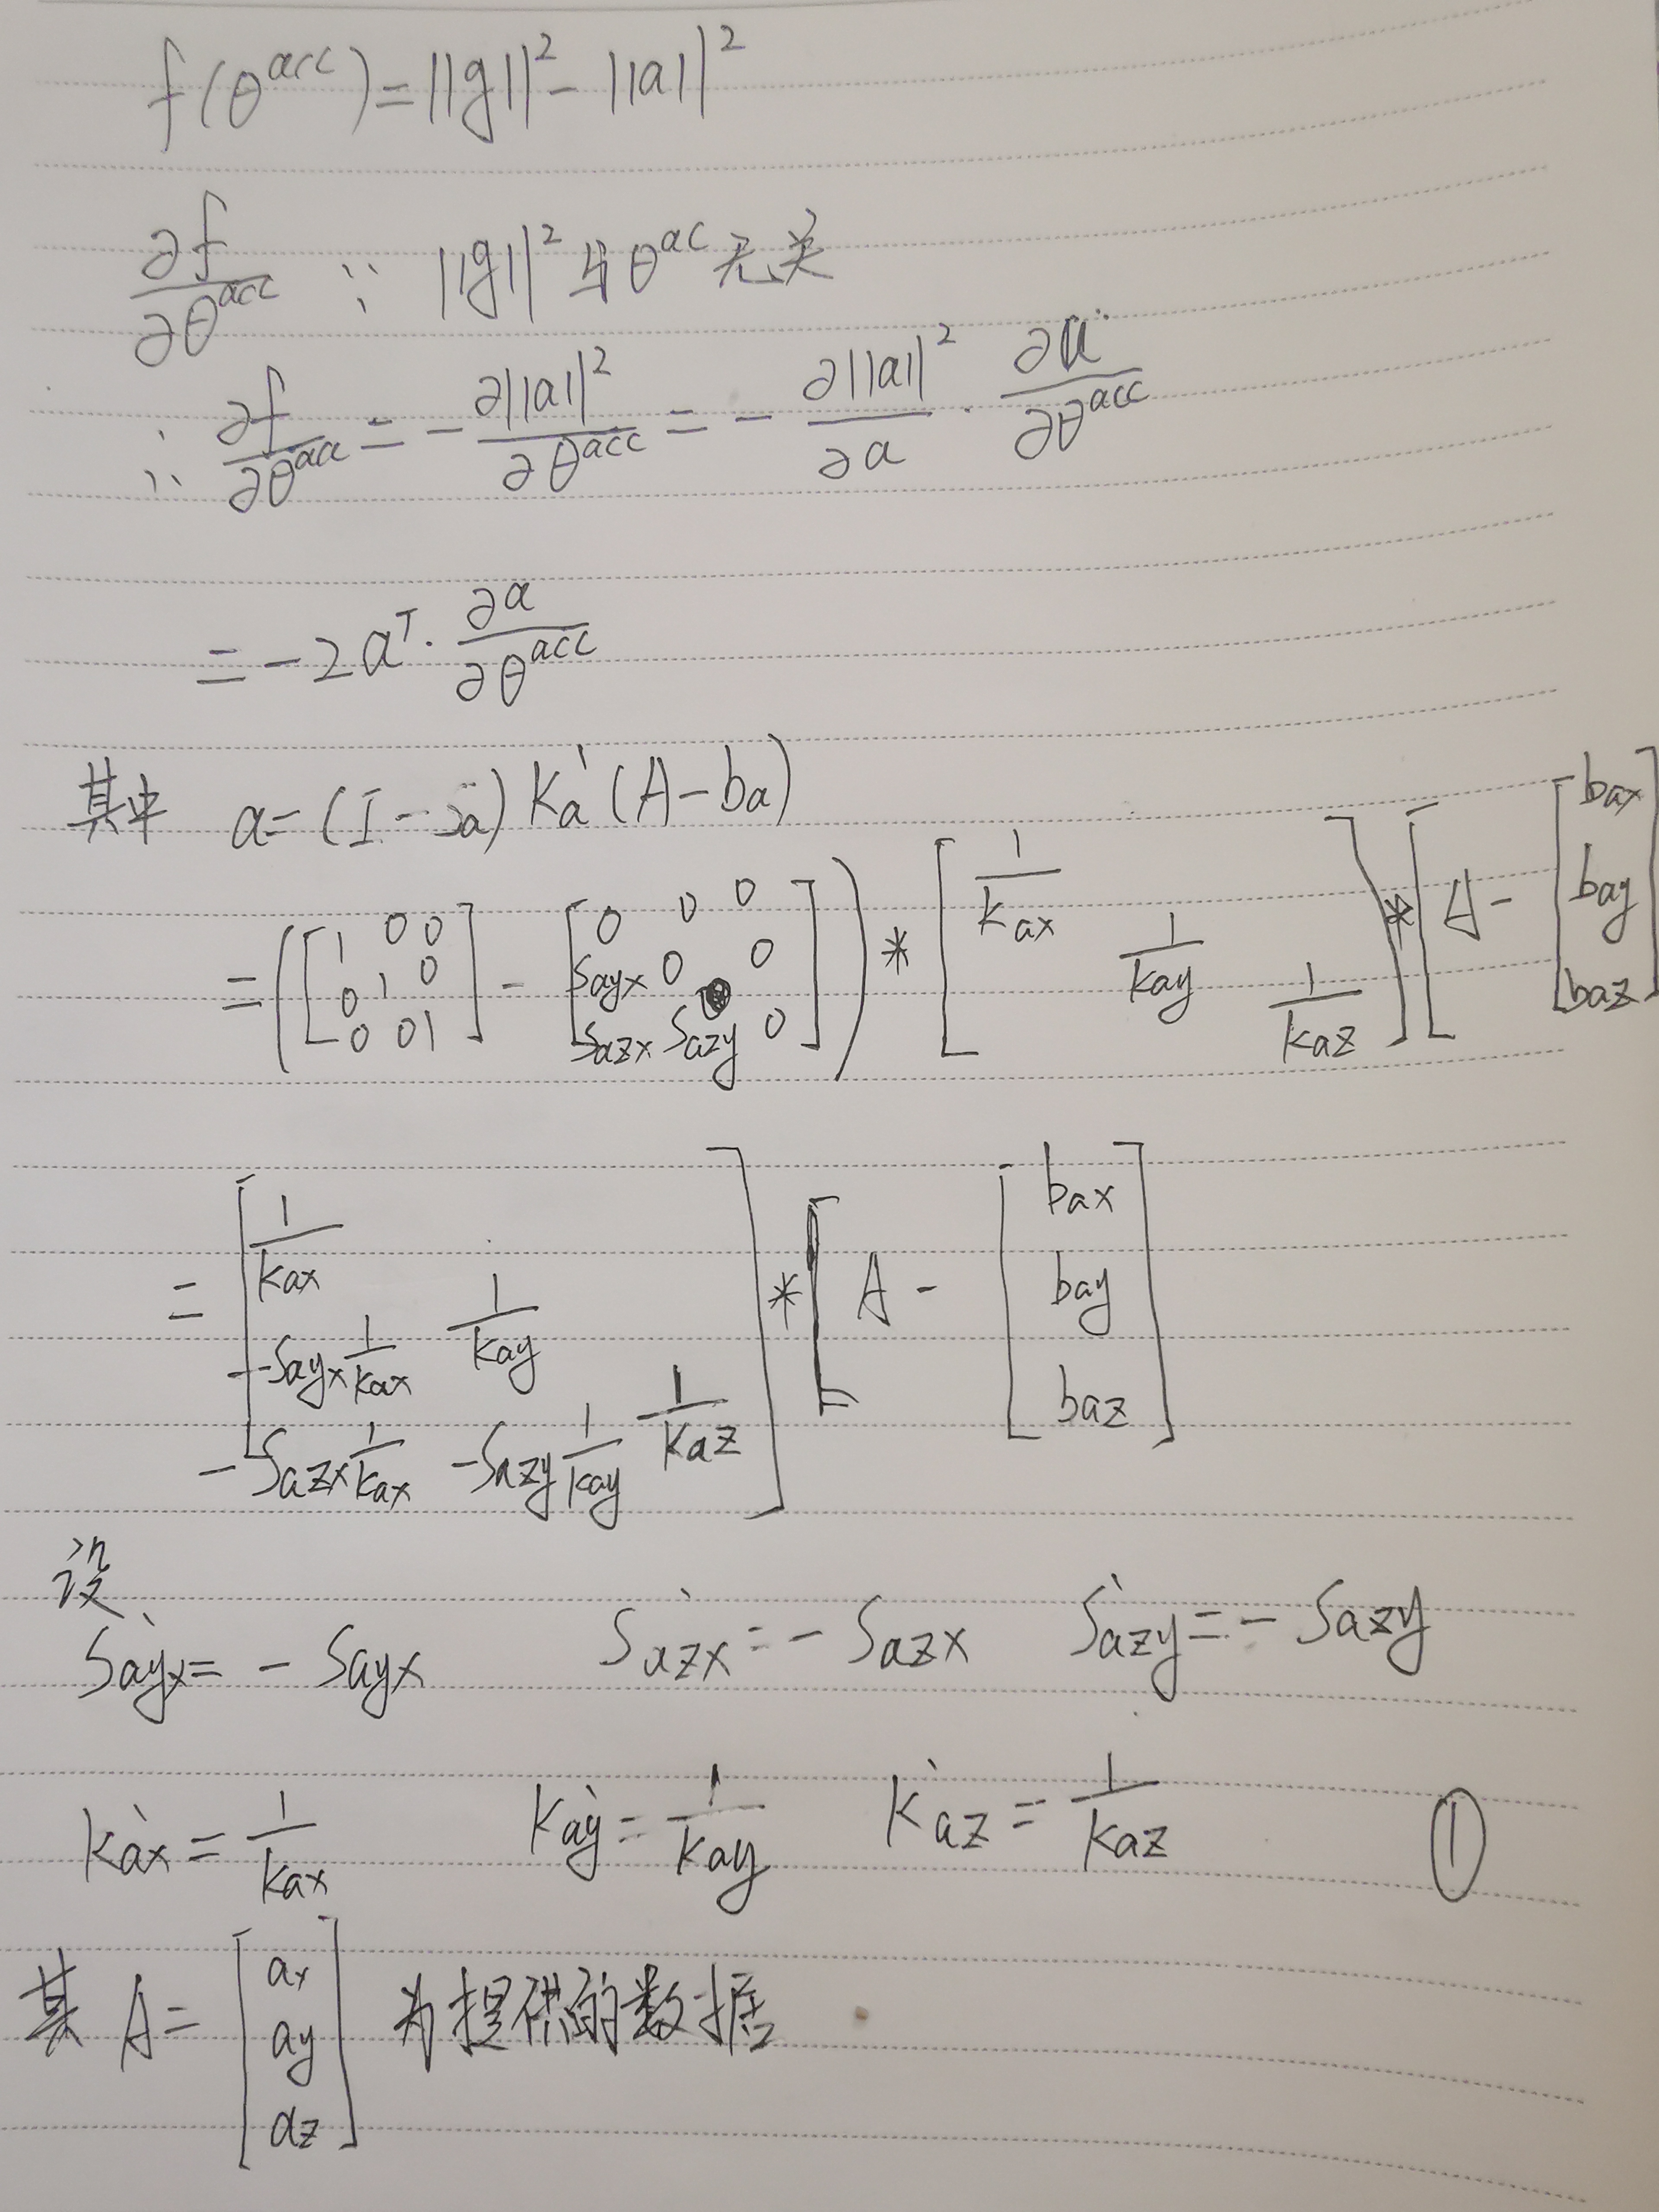 f(θ^acc) = ||g||² - ||a||²
∂f/∂θ^acc ∵ ||g||² 与 θ^ac 无关
∴ ∂f/∂θ^acc = - ∂||a||²/∂θ^acc = - ∂||a||²/∂a · ∂a/∂θ^acc
= -2a^T · ∂a/∂θ^acc
其中 a = (I - Sa) Ka' (A - ba)
= ([1 0 0; 0 1 0; 0 0 1] - [0 0 0; Sayx 0 0; Sazx Sazy 0]) * [1/kax 1/kay 1/kaz] * [A - [bax bay baz]]
= [1/kax; -Sayx 1/kax 1/kay; -Sazx 1/kax -Sazy 1/kay 1/kaz] * [A - [bax bay baz]]
设
Sayx' = - Sayx Sazx' = - Sazx Sazy' = - Sazy
kax' = 1/kax kay' = 1/kay kaz' = 1/kaz ①
其 A = [ax ay az] 为提供的数据